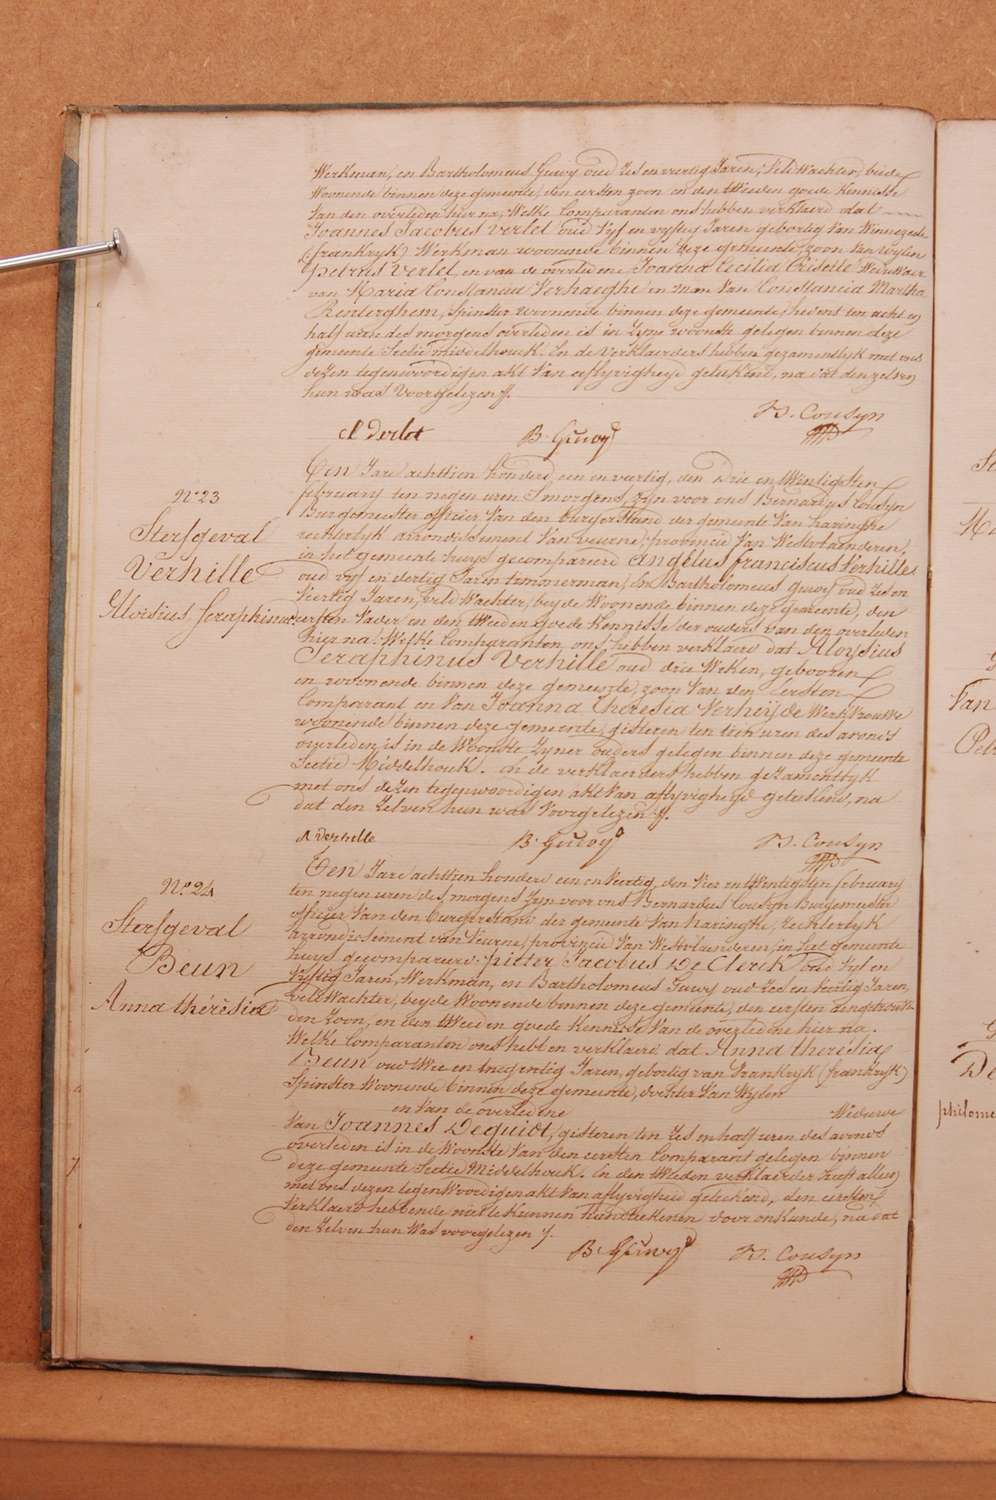 Werkman, en Bartholomeus Guwy oud Zes en veertig Jaren, Veld Wachter, beyde
Woonende binnen deze gemeente, den eersten zoon en den tweeden goede kennisse
Van den overleden hier na, Welke Comparanten ons hebben verklaerd dat
Joannes Jacobus Verlet oud Vyf en vyftig Jaren geboortig Van Winnezeele
(frankryk) Werkman woonende binnen deze gemeente, zoon Van wylen
Petrus Verlet, en van de overledene Joanna Cecilia Weduwaer
van Maria Constancia Verhaeghe en man Van Constancia Martha
Renterghem, Spinster woonende binnen deze gemeente, hedens ten acht en
half uren des morgens overleden is in Zyne woonste gelegen binnen deze
gemeente Sectie middelhouk. En de Verklaerders hebben gezamentlyk met ons
dezen tegenwoordigen akt Van aflyvigheyd geteekend, na dat den zelven
hun was Voorgelezen ./.
B. Guwy
B. Cousyn
N° 23
Sterfgeval
Verhille
Aloisius Seraphinus
Een Jare achttien honderd een en veertig, den Drie en twintigsten
february ten negen uren S'morgens, zyn voor ons Bernardus Cousyn
Burgemeester officier Van den burgerstand der gemeente Van haringhe
rechterlyk arrondissement Van veurne, provincie Van Westvlaenderen,
in het gemeente huys gecompareerd Angelus franciscus Verhille
oud vyf en dertig Jaren timmerman, En Bartholomeus Guwy oud Zes en
Veertig Jaren, Veld Wachter, beyde Woonende binnen deze gemeente, den
eersten Vader en den tweeden goede kennisse der ouders van den overleden
hier na. Welke Comparanten, ons hebben verklaerd dat Aloysius
Seraphinus Verhille oud drie Weken, gebooren
en woonende binnen deze gemeente, zoon Van den Eersten
Comparant en Van Joanna Theresia Verheyde Werkvrouwe
woonende binnen deze gemeente, gisteren ten tien uren des avonds
overleden is in de Woonste Zyner ouders gelegen binnen deze gemeente
Sectie Middelhouk. En de verklaerders hebben gezamentlyk
met ons dezen tegenwoordigen akt Van aflyvigheyd geteekend, na
dat den zelven hun was Voorgelezen ./.
A Verhille
B. Guwy
B. Cousyn
N° 24
Sterfgeval
Beun
Anna thérésia
Een Jare achttien honderd een en Veertig, den Vier en twintigsten february
ten negen uren des morgens zyn voor ons Bernardus Cousyn Burgemeester
officier Van den burgerstand der gemeente Van haringhe, rechterlyk
arrondissement van Veurne, provincie Van Westvlaenderen, in het gemeente
huys gecompareerd pieter Jacobus De Clerck oud Vyf en
Vyftig Jaren, Werkman, en Bartholomeus Guwy oud Zes en Veertig Jaren,
veld Wachter, beyde Woonende binnen deze gemeente, den eersten aengetrouw-
den Zoon, en den tweeden goede kennisse Van de overledene hier na.
Welke Comparanten ons hebben verklaerd dat Anna thérésia
Beun oud twee en tnegentig Jaren, geboortig van frankryk (frankryk)
Spinster Woonende binnen deze gemeente, dochter Van Wylen
en Van de overledene Weduwe
Van Joannes Dequidt, gisteren ten Zes en half uren des avonds
overleden is in de Woonste Van den eersten Comparant gelegen binnen
deze gemeente Sectie Middelhouk. En den tweden verklaerder heeft alleen
met ons dezen tegenwoordigen akt Van aflyvigheid geteekend, den eersten
Verklaerd hebbende niet te kunnen handteekenen door onkunde, na dat
den Zelven hun Was voorgelezen ./.
B. Guwy
B. Cousyn
Van
De
philome